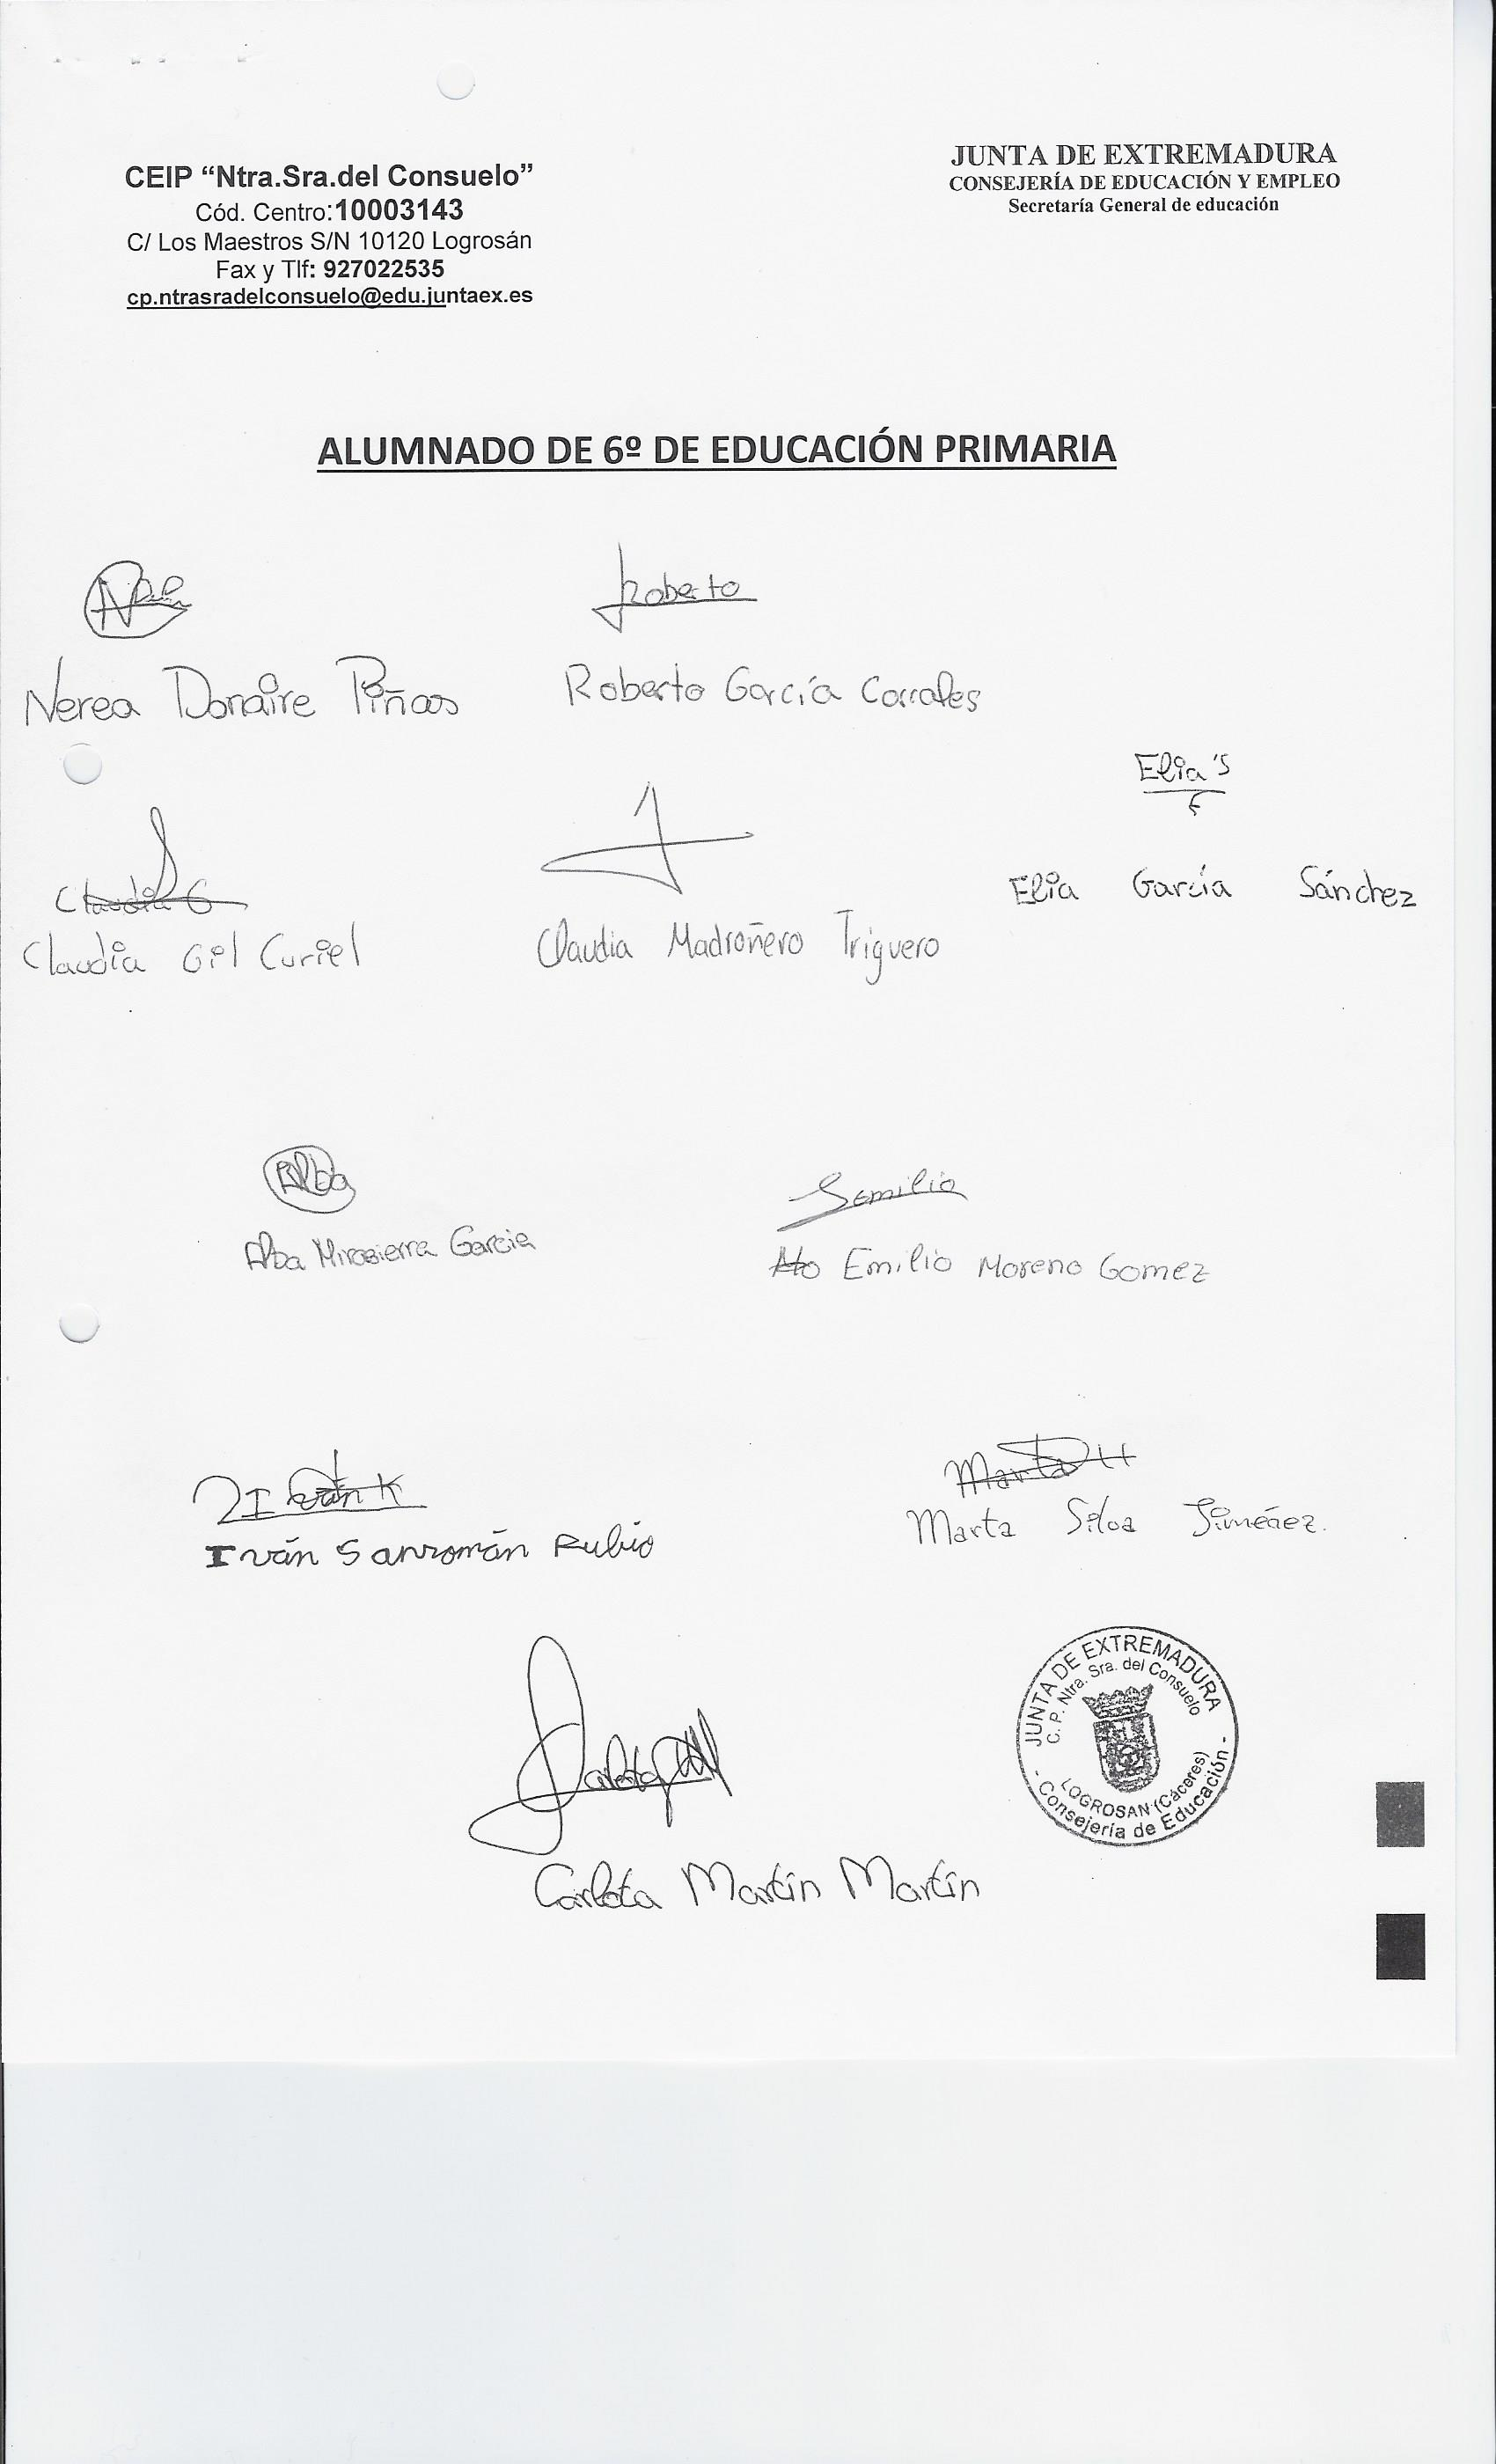 CEIP “Ntra.Sra.del Consuelo”
Cód. Centro:10003143
C/ Los Maestros S/N 10120 Logrosán
Fax y Tlf: 927022535
cp.ntrasradelconsuelo@edu.juntaex.es
JUNTA DE EXTREMADURA
CONSEJERÍA DE EDUCACIÓN Y EMPLEO
Secretaría General de educación
ALUMNADO DE 6º DE EDUCACIÓN PRIMARIA
Roberto
Nerea Donaire Piñas
Roberto García Corrales
Elia's
Claudia G
Elia García Sánchez
Claudia Gil Curiel
Claudia Madroñero Triguero
Alba
Alba Mirasierra Garcia
Emilio
Ato Emilio Moreno Gomez
Iván
Marta
Iván Sanromán Rubio
Marta Silva Jiménez.
Carlota
Carlota Martín Martín
JUNTA DE EXTREMADURA
C. P. Ntra. Sra. del Consuelo
LOGROSAN (Cáceres)
- Consejería de Educación -